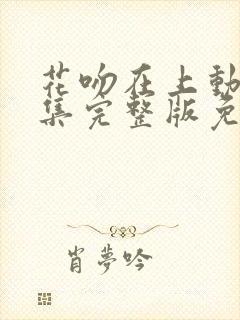 花吻在上動
集完整版免
肖夢吟